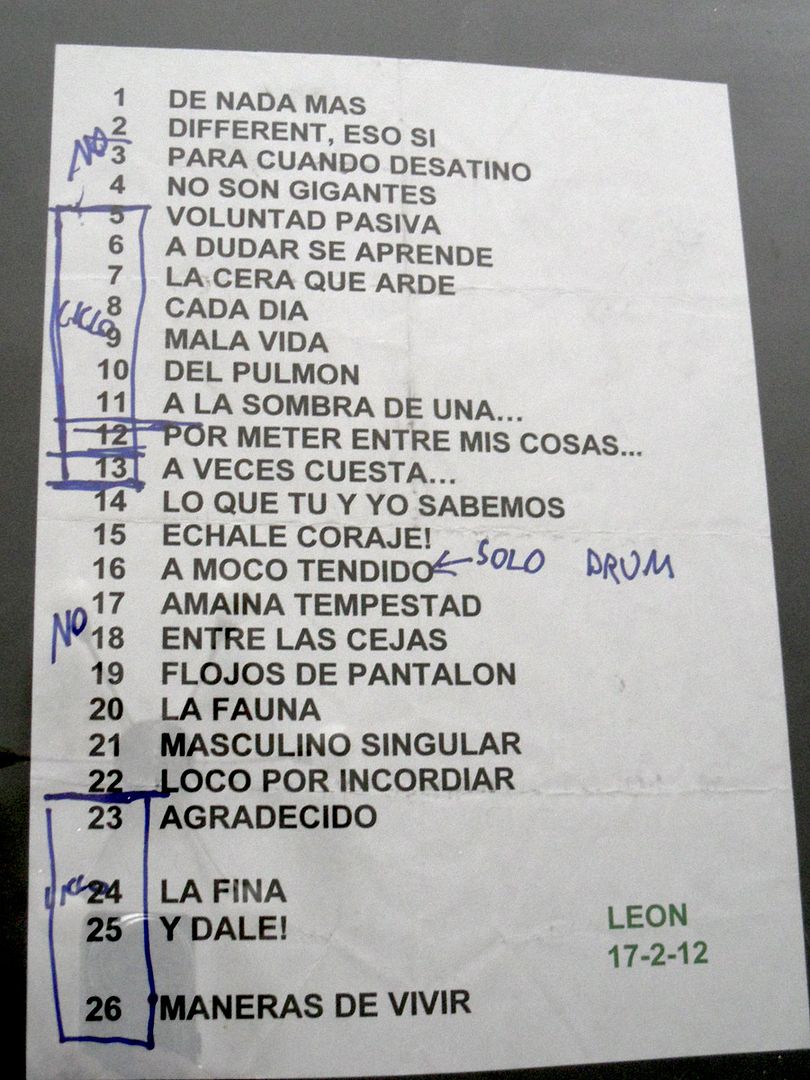 1 DE NADA MAS
2 DIFFERENT, ESO SI
NO
3 PARA CUANDO DESATINO
4 NO SON GIGANTES
5 VOLUNTAD PASIVA
6 A DUDAR SE APRENDE
7 LA CERA QUE ARDE
8 CADA DIA
CICLO
9 MALA VIDA
10 DEL PULMON
11 A LA SOMBRA DE UNA...
12 POR METER ENTRE MIS COSAS...
13 A VECES CUESTA...
14 LO QUE TU Y YO SABEMOS
15 ECHALE CORAJE!
16 A MOCO TENDIDO SOLO DRUM
17 AMAINA TEMPESTAD
NO
18 ENTRE LAS CEJAS
19 FLOJOS DE PANTALON
20 LA FAUNA
21 MASCULINO SINGULAR
22 LOCO POR INCORDIAR
23 AGRADECIDO
24 LA FINA
25 Y DALE!
LEON
17-2-12
26 MANERAS DE VIVIR